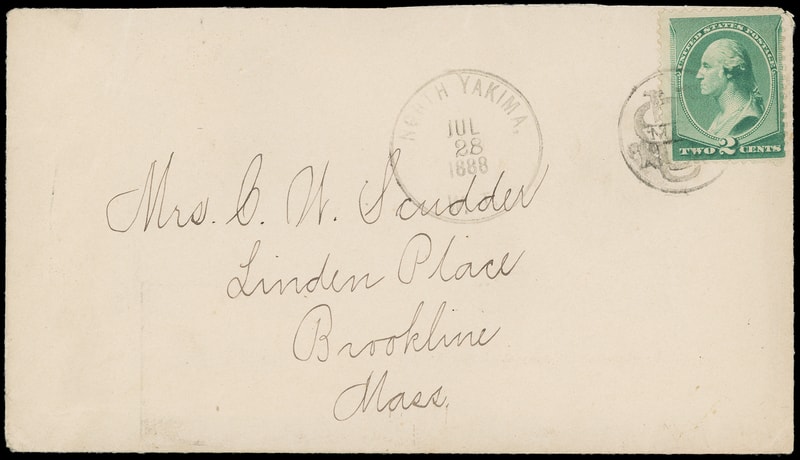 UNITED STATES POSTAGE
TWO 2 CENTS
NORTH YAKIMA,
JUL
28
1888
Mrs. C. W. Scudder
Linden Place
Brookline
Mass.